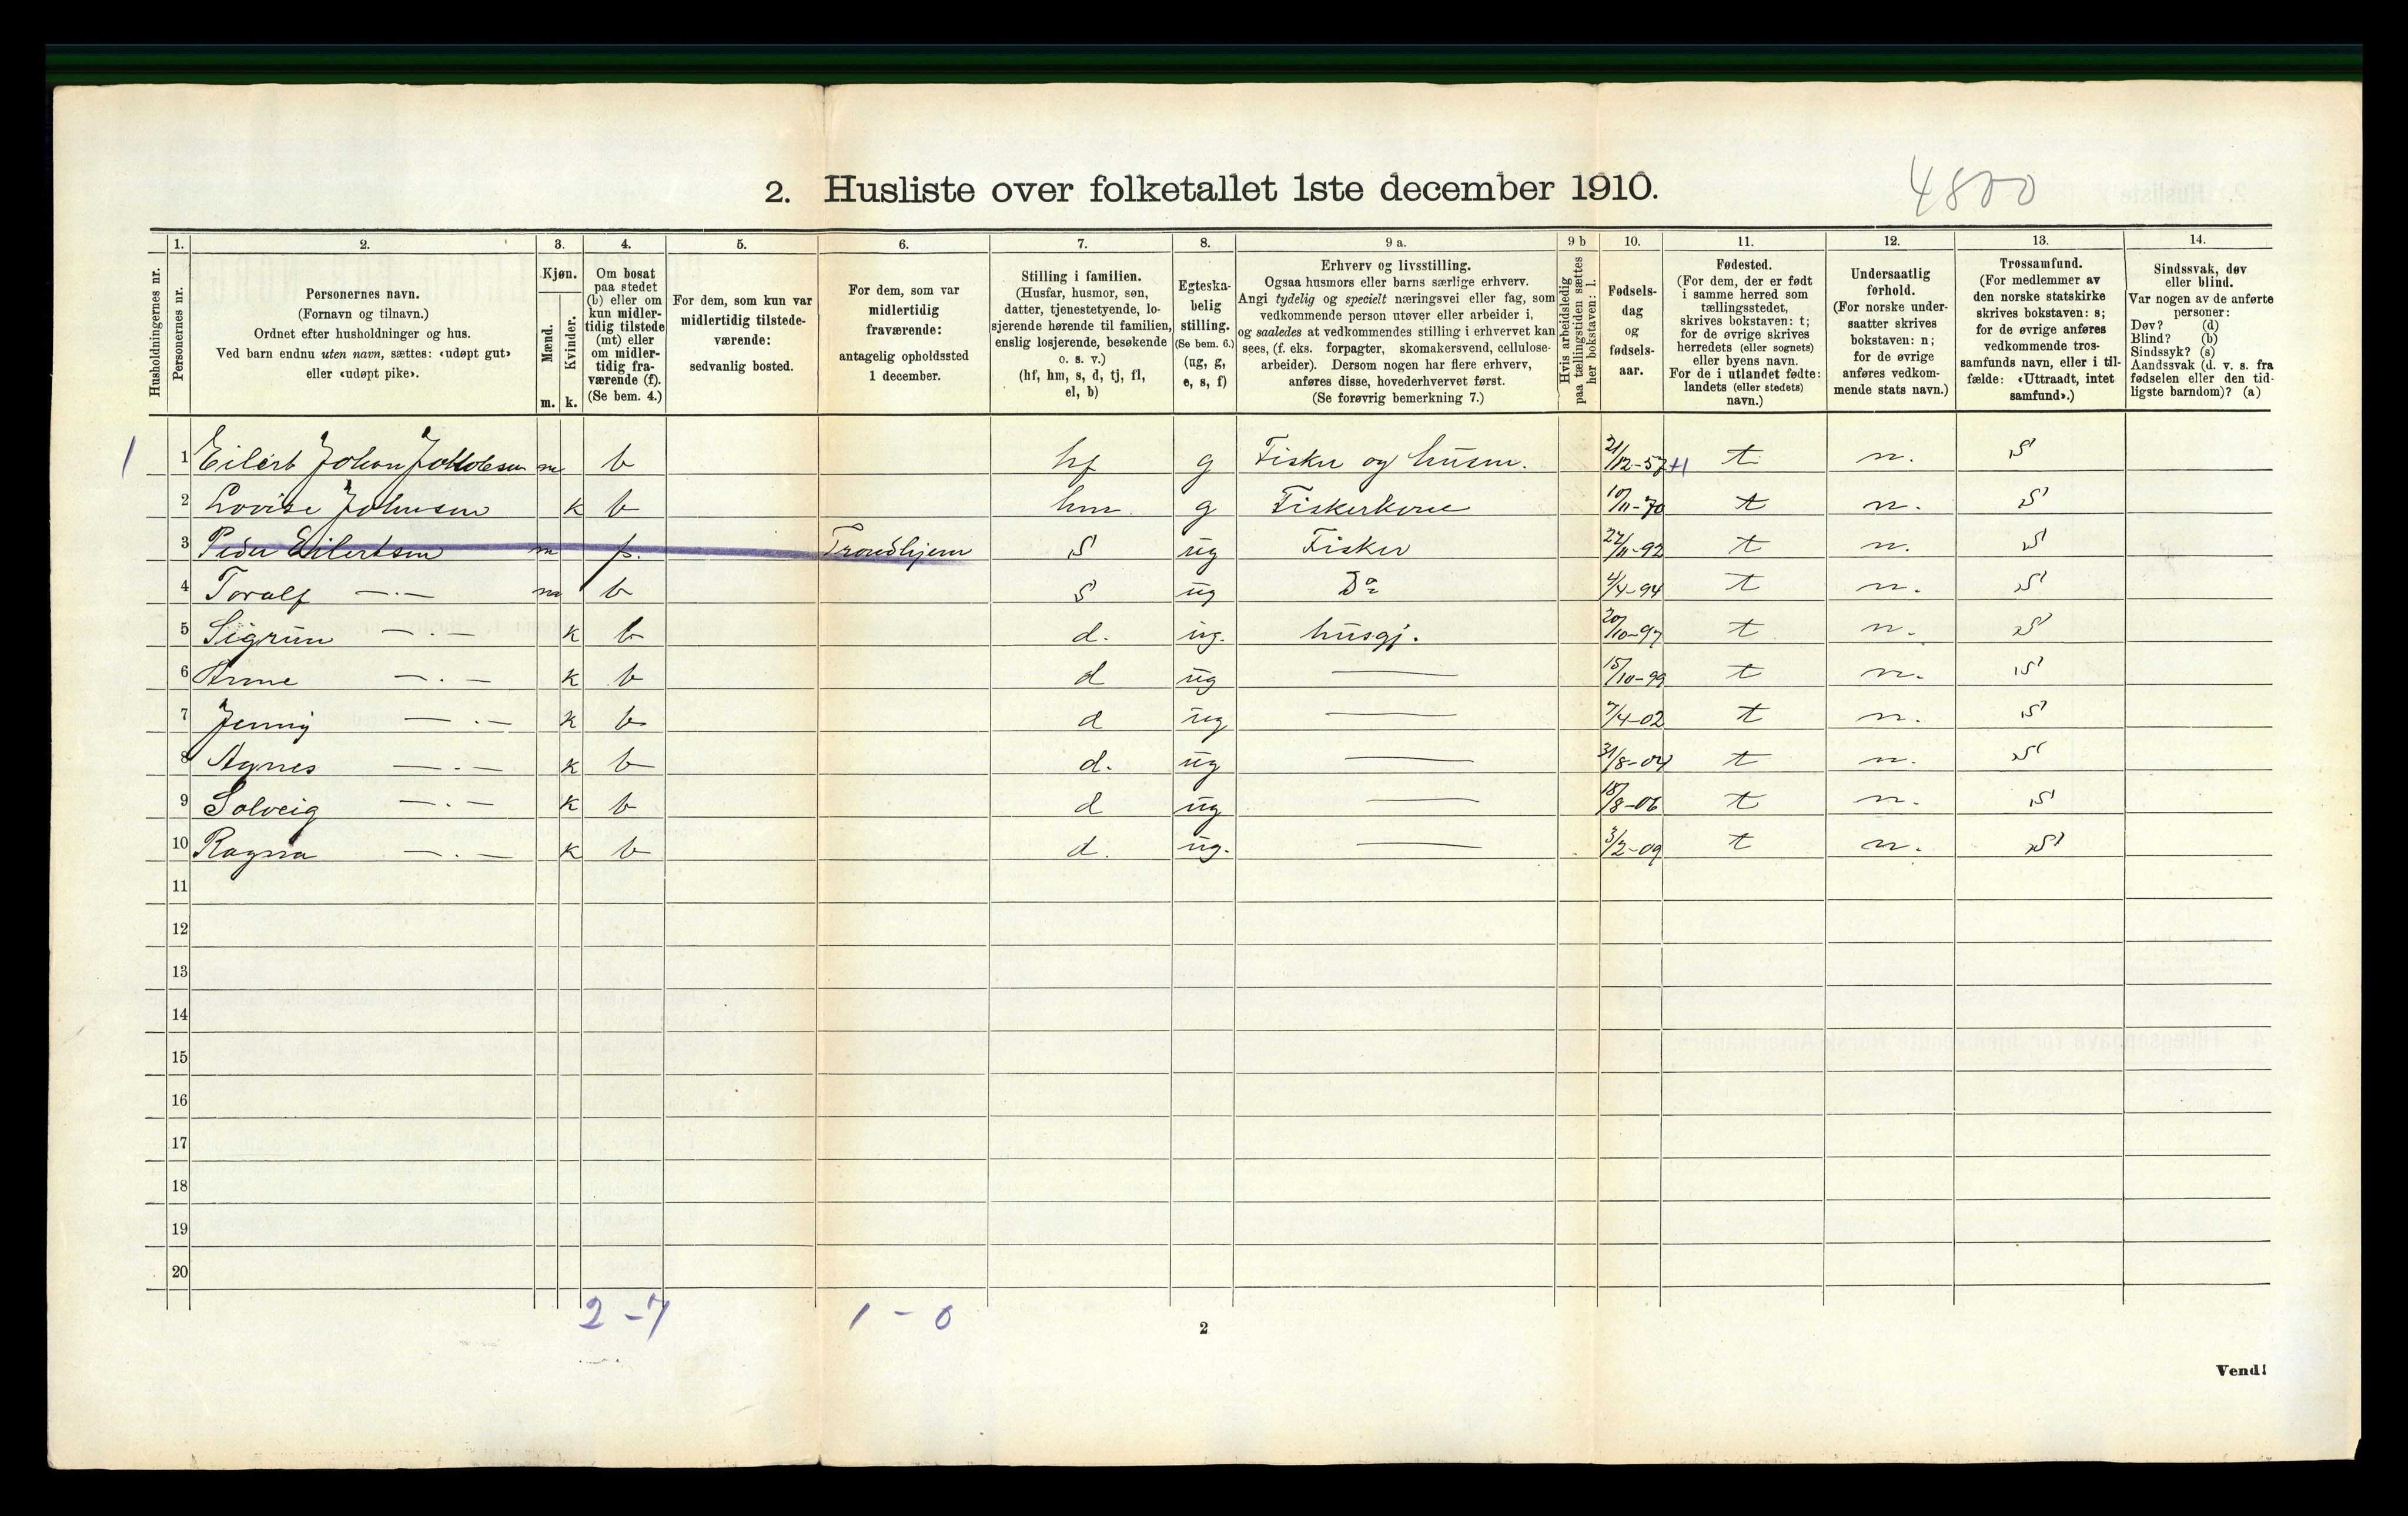 2. Husliste over folketallet 1ste december 1910.
4800
Husholdningernes nr.
1.
Personernes nr.
2.
Personernes navn.
(Fornavn og tilnavn.)
Ordnet efter husholdninger og hus.
Ved barn endnu uten navn, sættes: «udøpt gut»
eller «udøpt pike».
3.
Kjøn.
Mænd.
Kvinder.
m. k.
4.
Om bosat
paa stedet
(b) eller om
kun midler-
tidig tilstede
(mt) eller
om midler-
tidig fra-
værende (f).
(Se bem. 4.)
5.
For dem, som kun var
midlertidig tilstede-
værende:
sedvanlig bosted.
6.
For dem, som var
midlertidig
fraværende:
antagelig opholdssted
1 december.
7.
Stilling i familien.
(Husfar, husmor, søn,
datter, tjenestetyende, lo-
sjerende hørende til familien,
enslig losjerende, besøkende
o. s. v.)
(hf, hm, s, d, tj, fl,
el, b)
8.
Egteska-
belig
stilling.
(Se bem. 6.)
(ug, g,
e, s, f)
9 a.
Erhverv og livsstilling.
Ogsaa husmors eller barns særlige erhverv.
Angi tydelig og specielt næringsvei eller fag, som
vedkommende person utøver eller arbeider i,
og saaledes at vedkommendes stilling i erhvervet kan
sees, (f. eks. forpagter, skomakersvend, cellulose-
arbeider). Dersom nogen har flere erhverv,
anføres disse, hovederhvervet først.
(Se forøvrig bemerkning 7.)
9 b
Hvis arbeidsledig
paa tællingstiden sættes
her bokstaven: l.
10.
Fødsels-
dag
og
fødsels-
aar.
11.
Fødested.
(For dem, der er født
i samme herred som
tællingsstedet,
skrives bokstaven: t;
for de øvrige skrives
herredets (eller sognets)
eller byens navn.
For de i utlandet fødte:
landets (eller stedets)
navn.)
12.
Undersaatlig
forhold.
(For norske under-
saatter skrives
bokstaven: n;
for de øvrige
anføres vedkom-
mende stats navn.)
13.
Trossamfund.
(For medlemmer av
den norske statskirke
skrives bokstaven: s;
for de øvrige anføres
vedkommende tros-
samfunds navn, eller i til-
fælde: «Uttraadt, intet
samfund».)
14.
Sindssvak, døv
eller blind.
Var nogen av de anførte
personer:
Døv? (d)
Blind? (b)
Sindssyk? (s)
Aandssvak (d. v. s. fra
fødselen eller den tid-
ligste barndom)? (a)
1 1 Eilert Johan m b hf g Fisker og husm. 21/12-57 +1 t n. S
2 Lovise Johnsen k b hm g Fiskerkone 10/11-70 t n. S
3 Peder Eilertsen m f. Trondhjem S ug Fisker 27/11-92 t n. S
4 Toralf —.— m b S ug Do 4/4-94 t n. S
5 Sigrun —.— k b d. ug. husgj. 20/10-97 t n. S
6 Anne —.— k b d ug — 15/10-99 t n. S
7 Jenny —.— k b d ug — 7/4-02 t n. S
8 Agnes —.— k b d. ug — 31/8-04 t n. S
9 Solveig —.— k b d ug — 18/8-06 t n. S
10 Ragna —.— k b d. ug. — 3/2-09 t n. S
11
12
13
14
15
16
17
18
19
20
2-7 1-0
2
Vend!